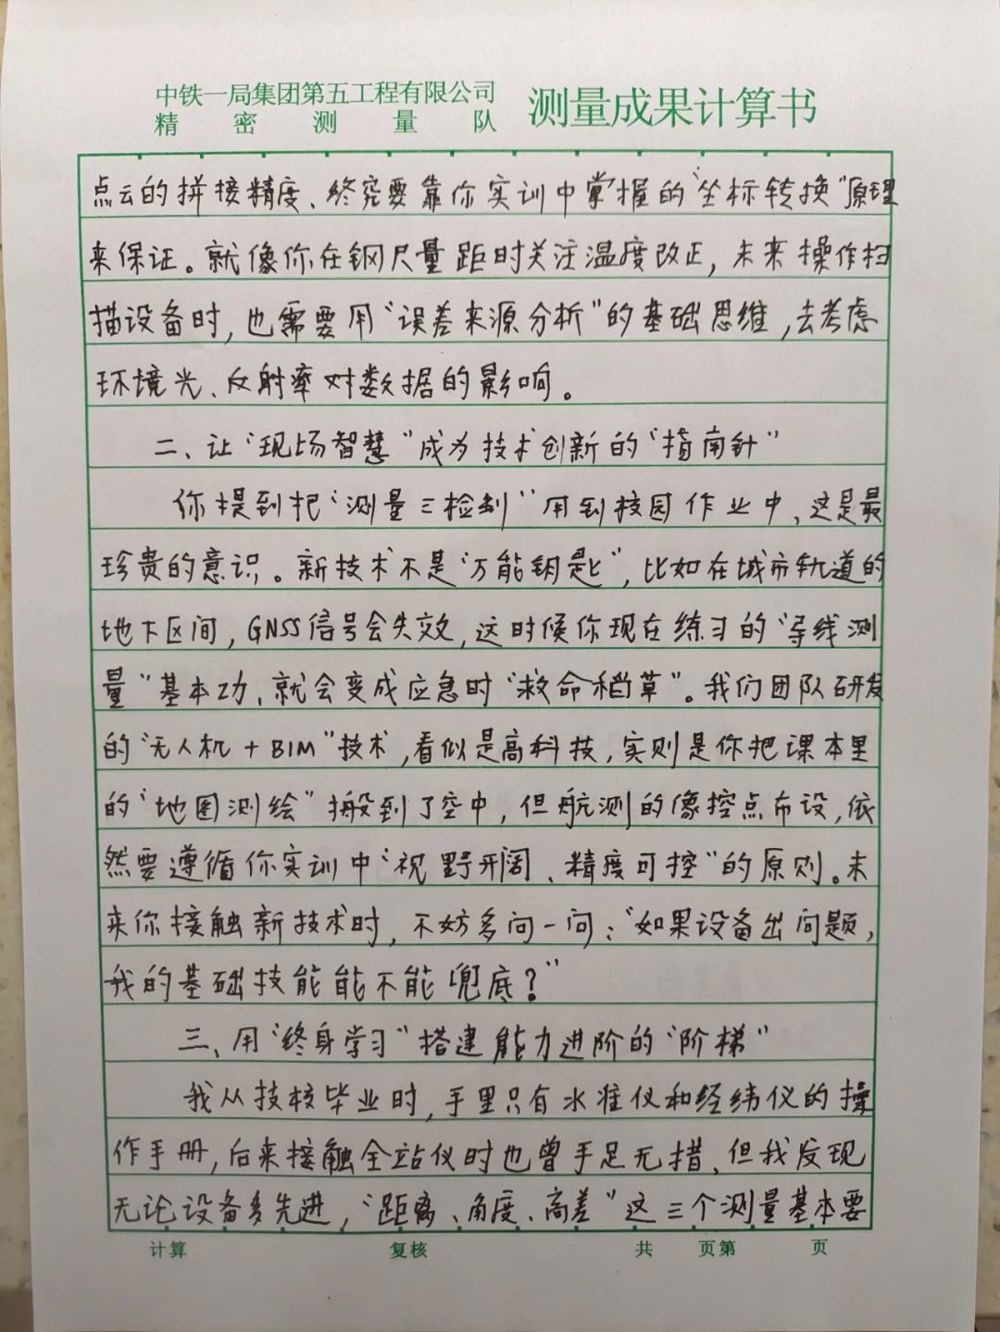 中铁一局集团第五工程有限公司
精密测量队
测量成果计算书
点云的拼接精度、终究要靠你实训中掌握的“坐标转换”原理
来保证。就像你在钢尺量距时关注温度改正，未来操作扫
描设备时，也需要用“误差来源分析”的基础思维，去考虑
环境光、反射率对数据的影响。
二、让“现场智慧”成为技术创新的“指南针”
你提到把“测量三检制”用到校园作业中，这是最
珍贵的意识。新技术不是“万能钥匙”，比如在城市轨道的
地下区间，GNSS信号会失效，这时候你现在练习的“导线测
量”基本功、就会变成应急时“救命稻草”。我们团队研发
的“无人机+BIM”技术，看似是高科技，实则是你把课本里
的“地图测绘”搬到了空中，但航测的像控点布设，依
然要遵循你实训中“视野开阔、精度可控”的原则。未
来你接触新技术时，不妨多问一问：“如果设备出问题，
我的基础技能能不能兜底？”
三、用“终身学习”搭建能力进阶的“阶梯”
我从技校毕业时，手里只有水准仪和经纬仪的操
作手册，后来接触全站仪时也曾手足无措、但我发现
无论设备多先进，“距离、角度、高差”这三个测量基本要
计算 复核 共 页第 页